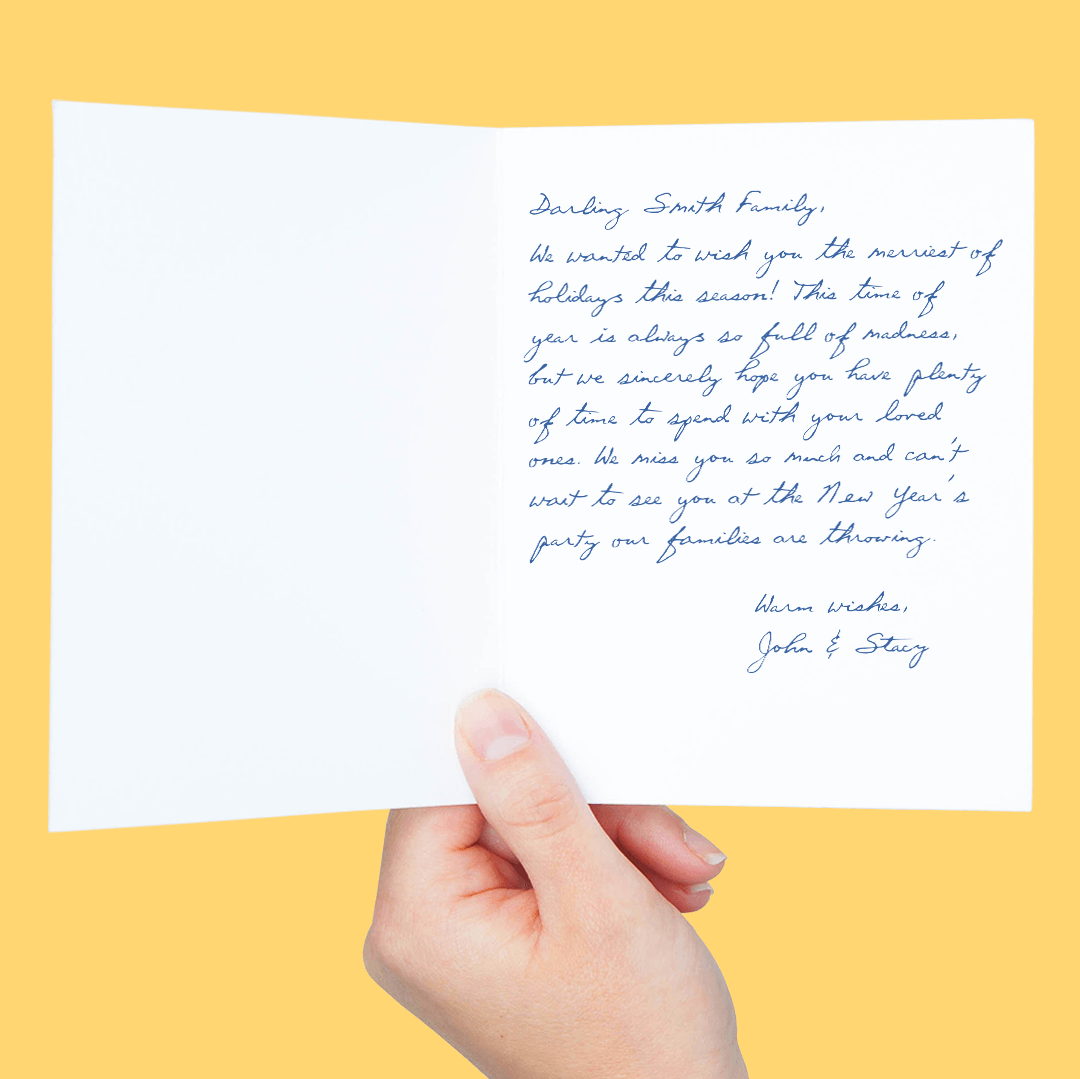 Darling Smith Family,
We wanted to wish you the merriest of
holidays this season! This time of
year is always so full of madness,
but we sincerely hope you have plenty
of time to spend with your loved
ones. We miss you so much and can't
wait to see you at the New Year's
party our families are throwing.
Warm wishes,
John & Stacy